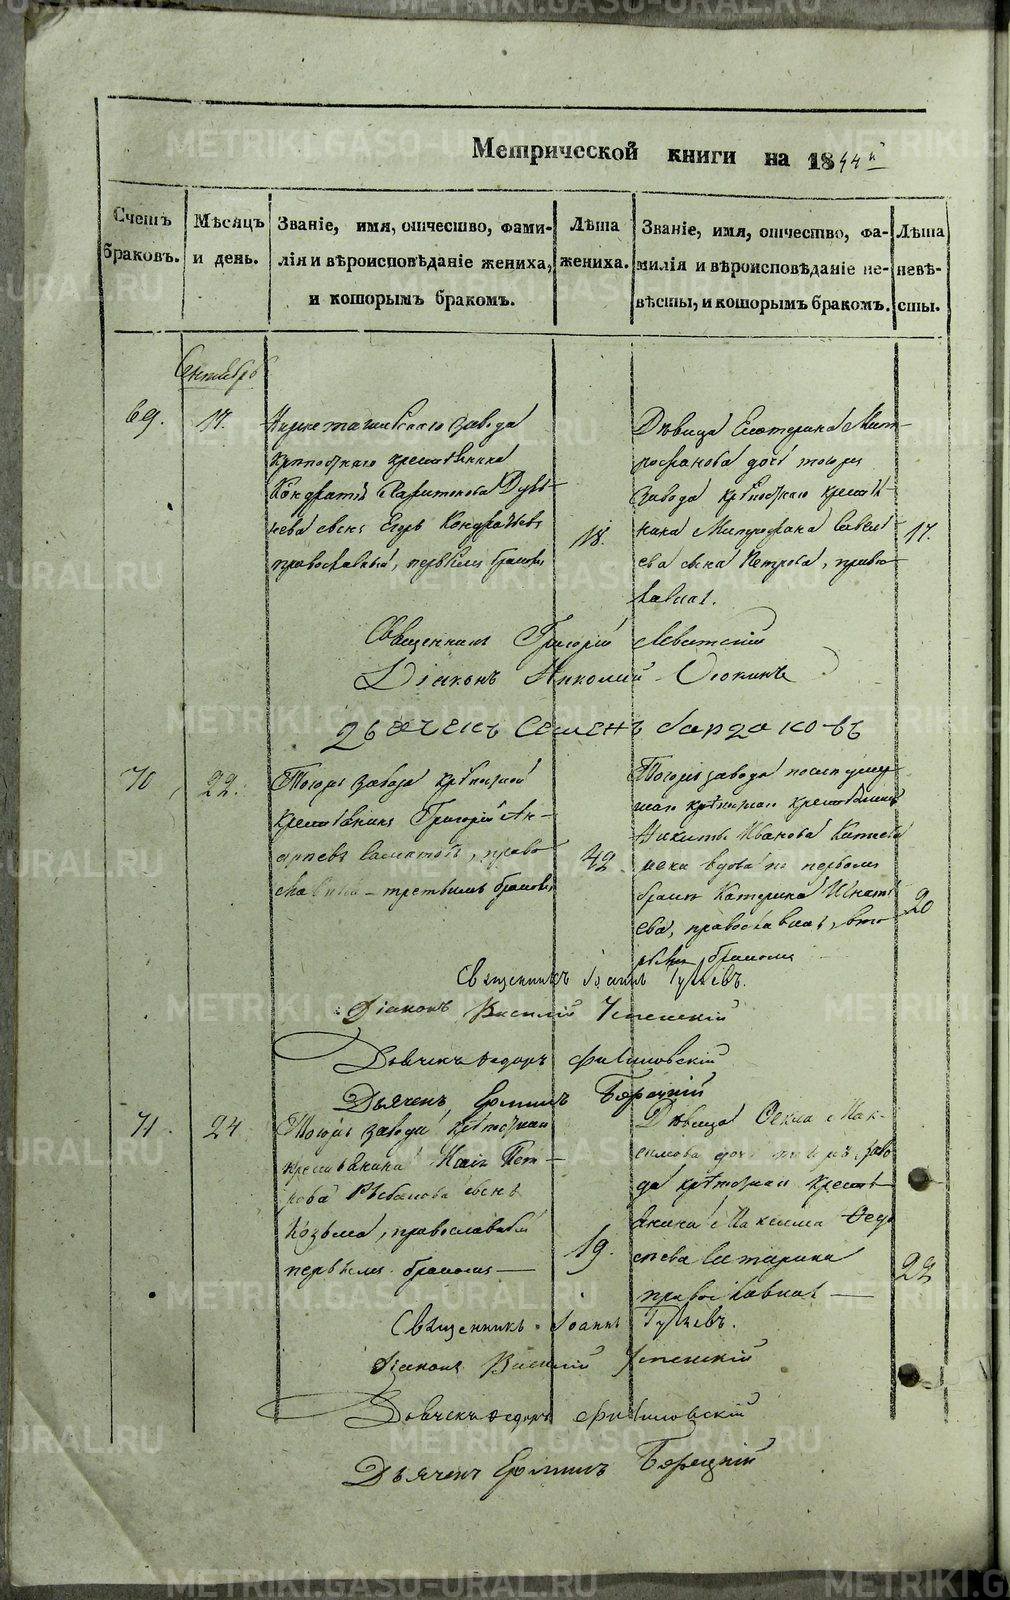 Метрической книги на 1844й
Счетъ браковъ.
Мѣсяцъ и день.
Званіе, имя, отчество, фамилія и вѣроисповѣданіе жениха, и которымъ бракомъ.
Лѣта жениха.
Званіе, имя, отчество, фамилія и вѣроисповѣданіе невѣсты, и которымъ бракомъ.
Лѣта невѣсты.
Сентябрь
69.
17.
завода
крѣпостнаго крестьянина
Кондратія Харитонова
сынъ Егоръ Кондратьевъ
православный, первымъ бракомъ
18.
Дѣвица Екатерина Мит-
рофанова дочь тогожъ
завода крѣпостнаго кресть-
янина Митрофана Савель-
ева сына Петрова, право-
славная.
17.
Священникъ Григорій Левитскій
Діаконъ Николай
Дьячекъ Семенъ Бардаковъ
70
22.
Тогожъ завода крѣпостной
крестьянинъ Григорій
православный третьимъ бракомъ
42.
Тогожъ завода после умер-
шаго крѣпостнаго крестьянина
Никиты Иванова
жена вдова по первомъ
бракѣ Катерина Игнать-
ева, православная, вто-
рымъ бракомъ
20
Священникъ Іоаннъ
Діаконъ Василій Успенскій
Дьячекъ Федоръ
Дьячекъ Борецкій
71.
24
Тогожъ завода крѣпостнаго
крестьянина Пет-
рова Рыбакова сынъ
Козьма, православный
первымъ бракомъ
19.
Дѣвица Фекла Мак-
симова дочь тогожъ заво-
да крѣпостнаго кресть-
янина Максима
православная
22
Священникъ Іоаннъ
Діаконъ Василій Успенскій
Дьячекъ Федоръ
Дьячекъ Борецкій
METRIKI.GASO-URAL.RU